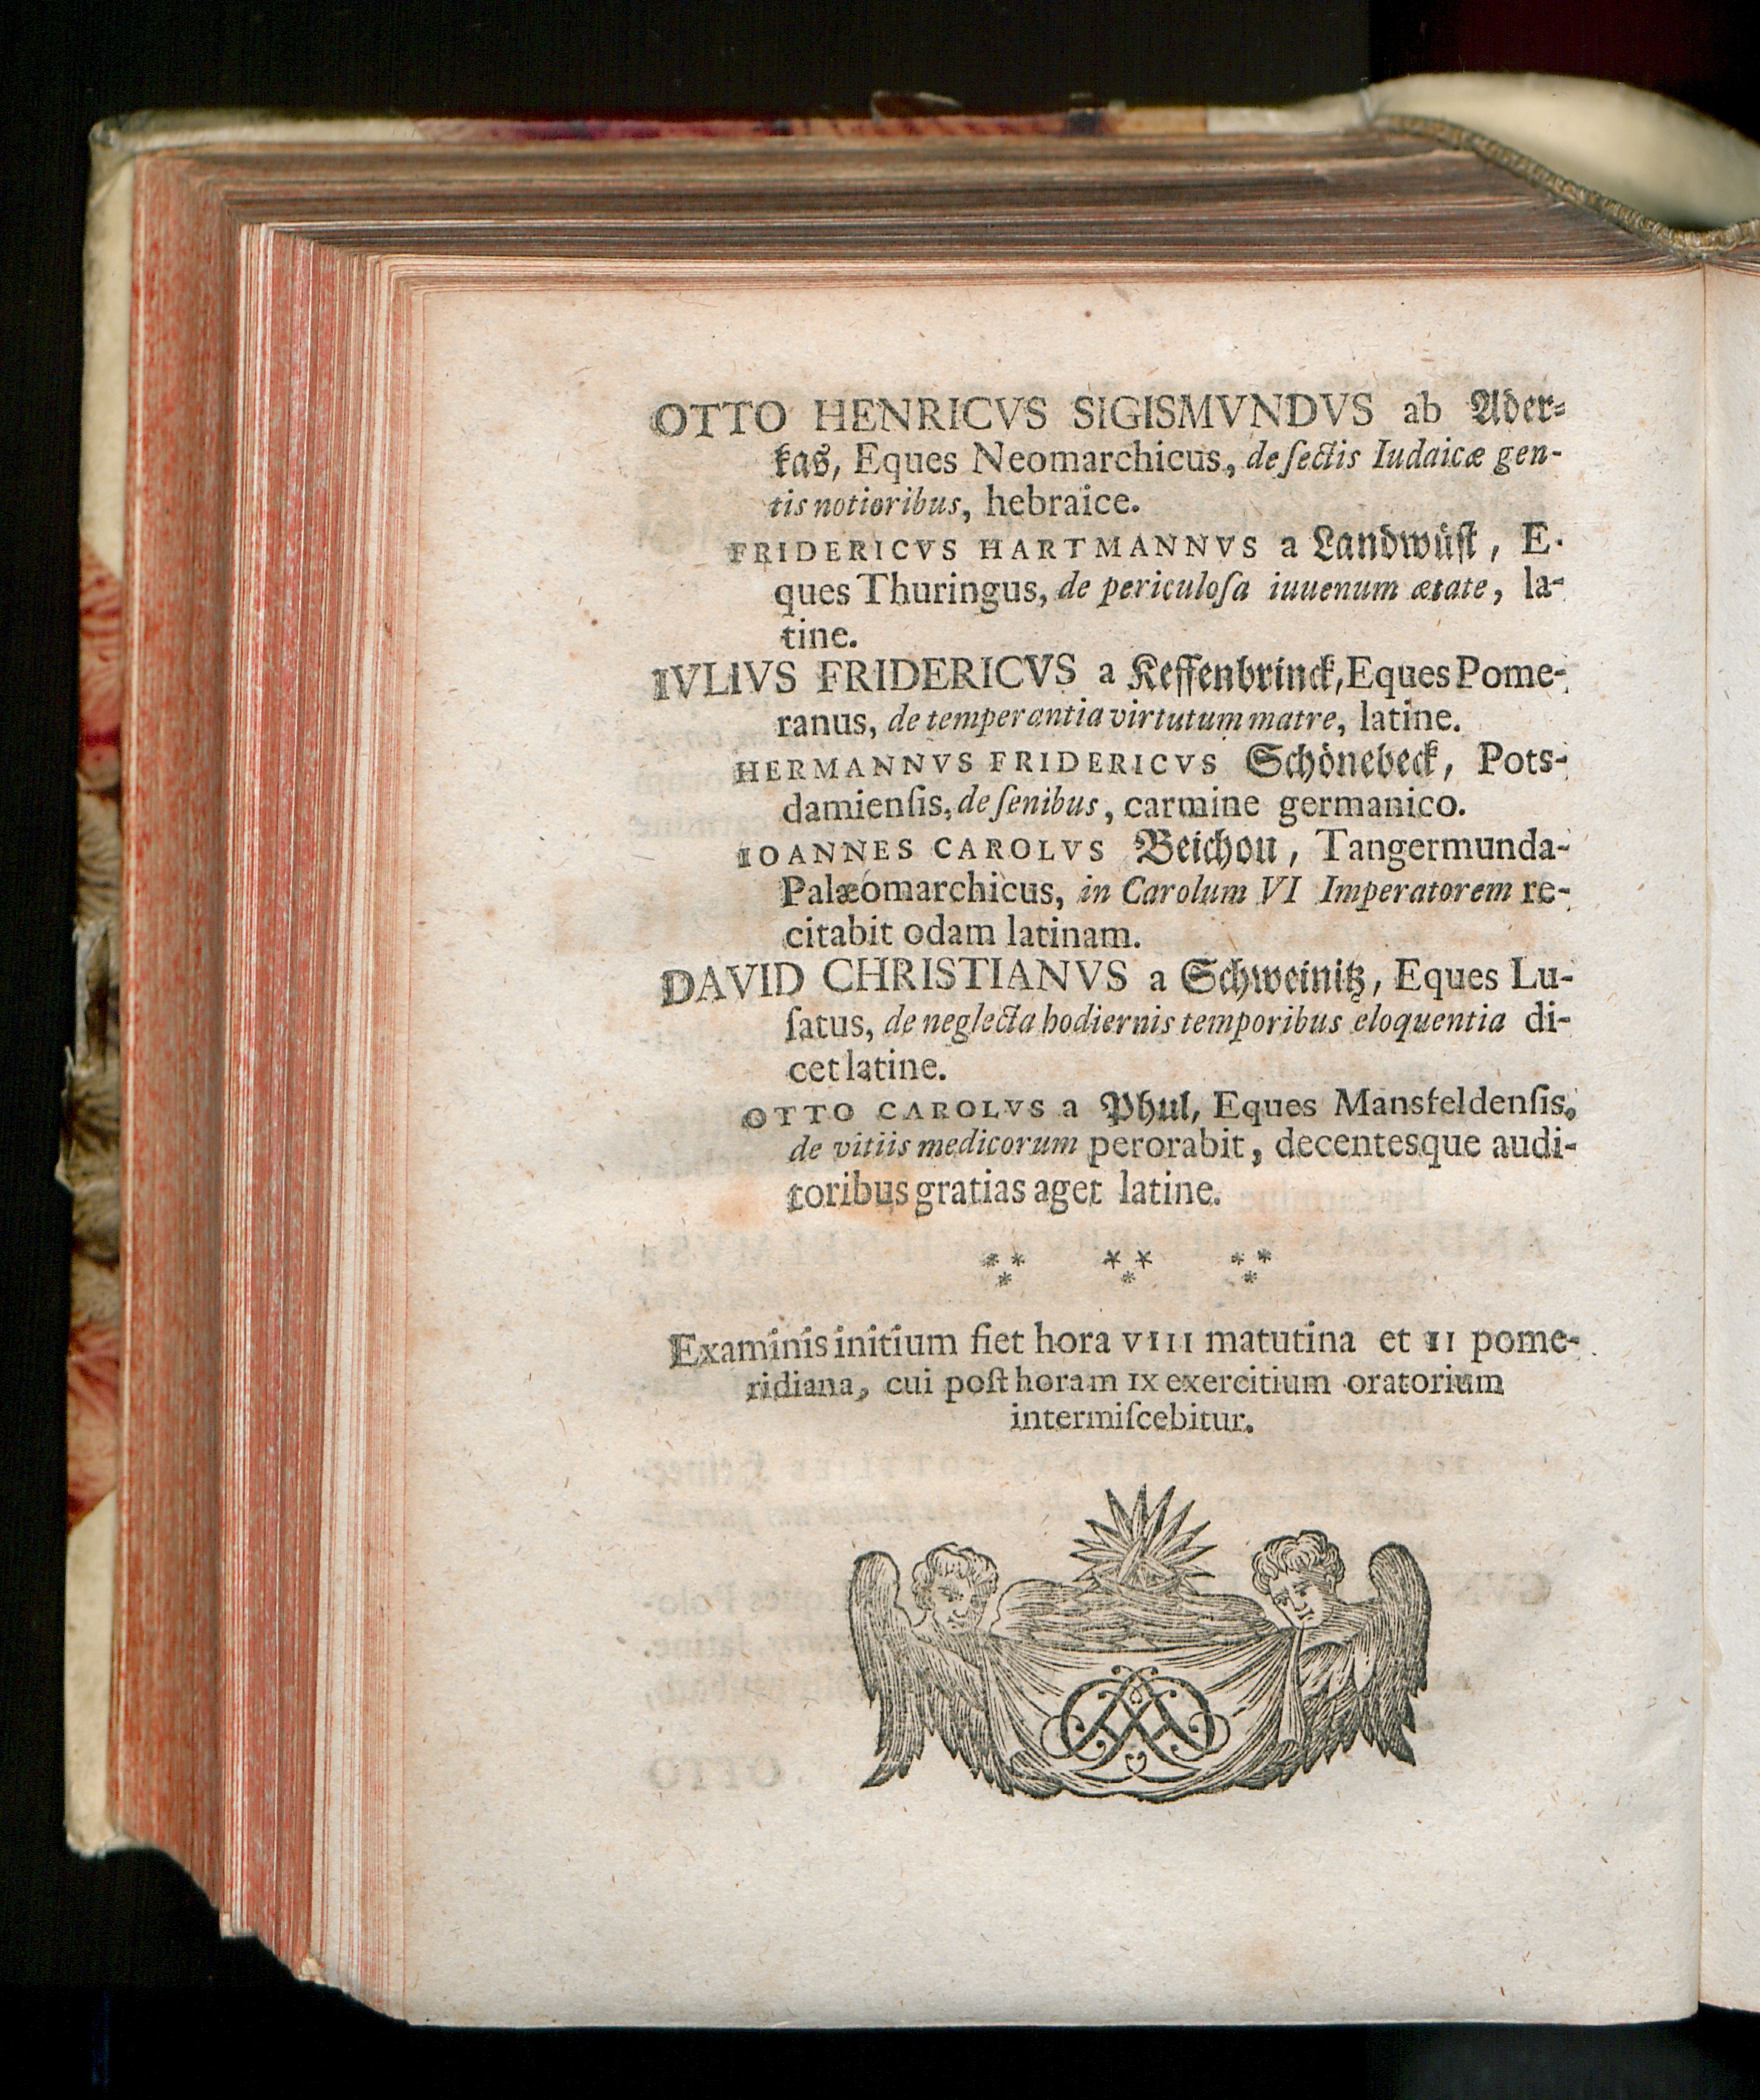 OTTO HENRICVS SIGISMVNDVS ab Ader-
kas, Eques Neomarchicus, de ſectis Iudaicæ gen-
tis notioribus, hebraice.
FRIDERICVS HARTMANNVS a Landwüſt, E-
ques Thuringus, de periculoſa iuuenum ætate, la-
tine.
IVLIVS FRIDERICVS a Keffenbrinck, Eques Pome-
ranus, de temperantia virtutum matre, latine.
HERMANNVS FRIDERICVS Schönebeck, Pots-
damienſis, de ſenibus, carmine germanico.
IOANNES CAROLVS Beichou, Tangermunda-
Palæomarchicus, in Carolum VI Imperatorem re-
citabit odam latinam.
DAVID CHRISTIANVS a Schweinitz, Eques Lu-
ſatus, de neglecta hodiernis temporibus eloquentia di-
cet latine.
OTTO CAROLVS a Phul, Eques Mansfeldenſis,
de vitiis medicorum perorabit, decentesque audi-
toribus gratias aget latine.
Examinis initium fiet hora VIII matutina et II pome-
ridiana, cui poſt horam IX exercitium oratorium
intermiſcebitur.